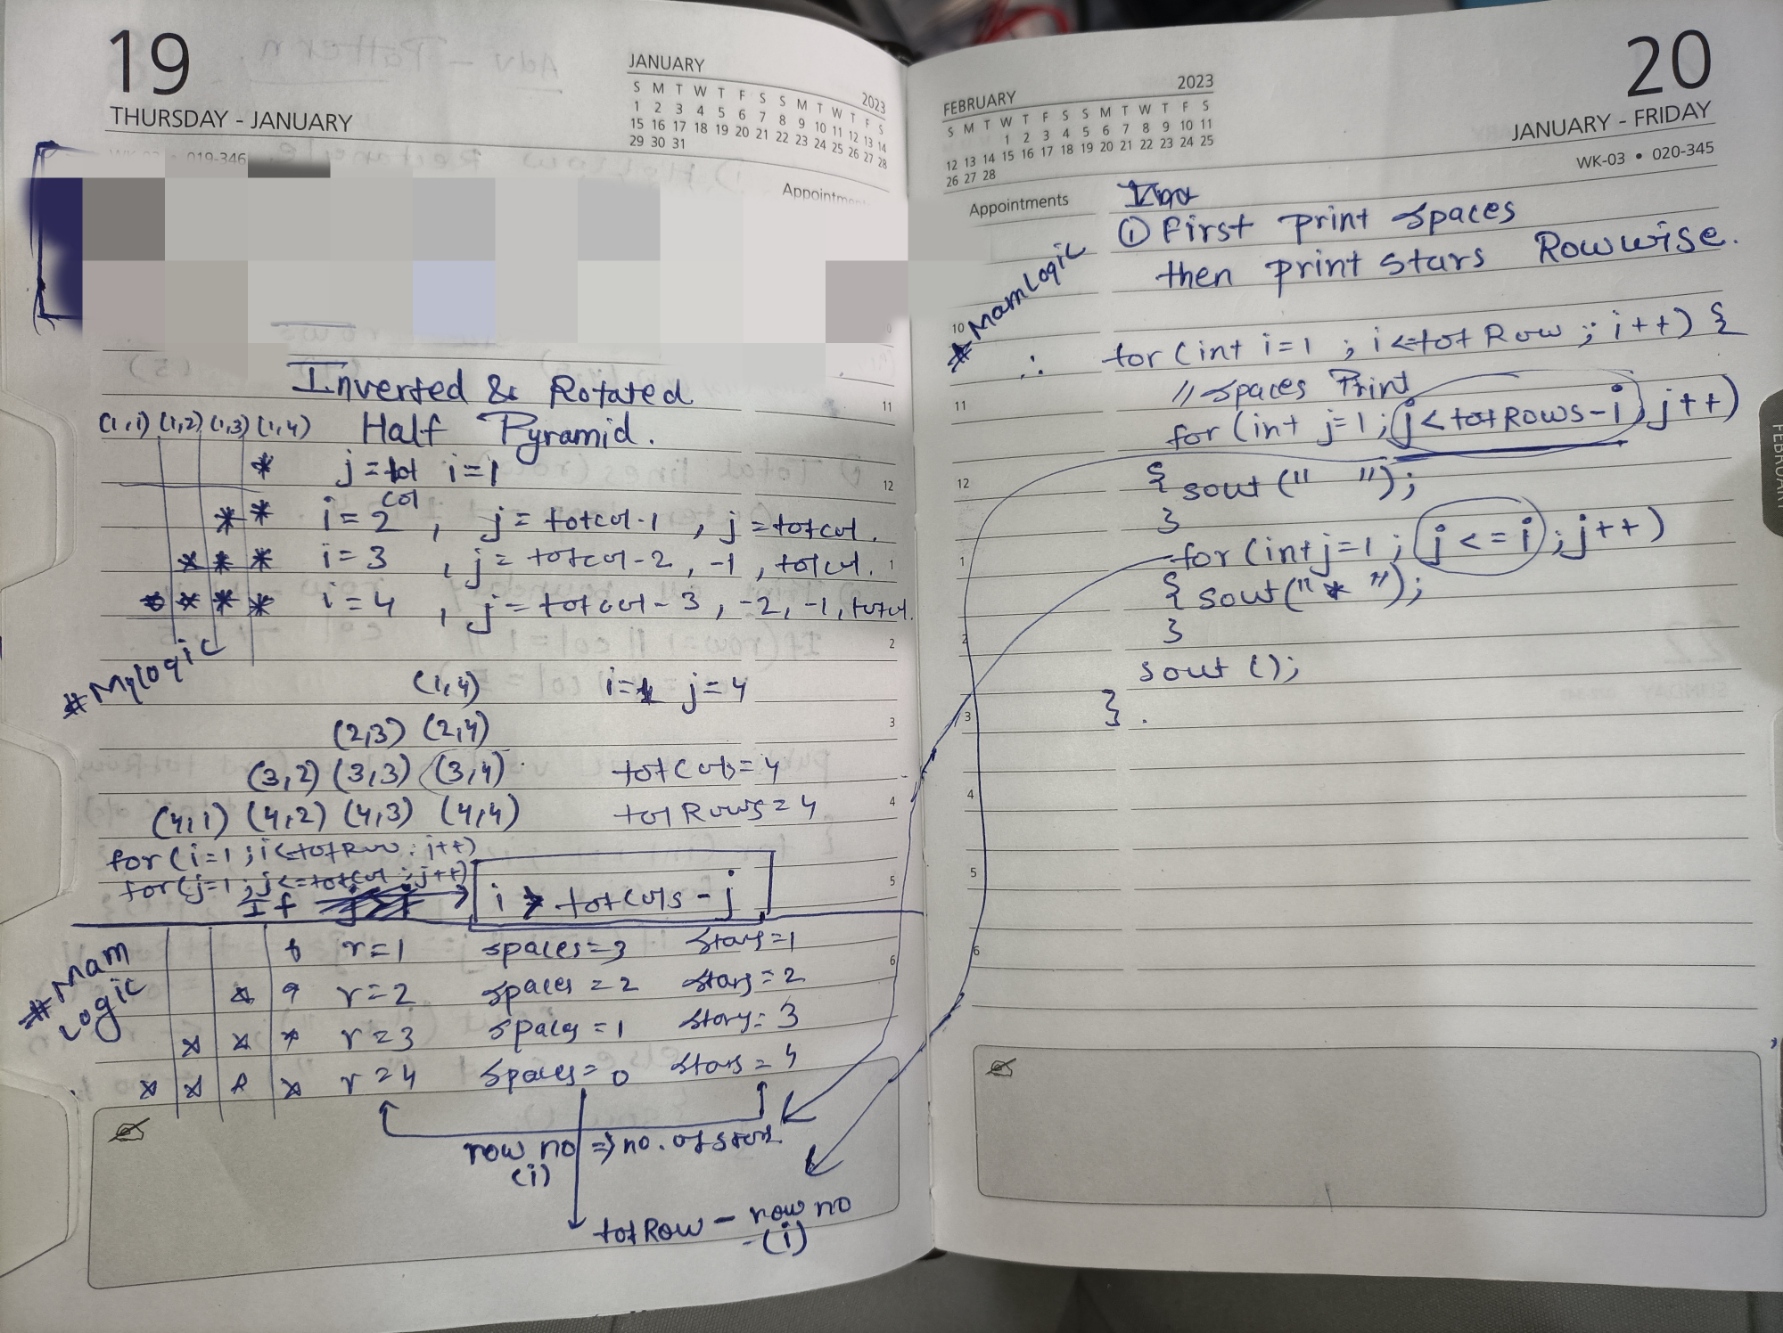 19
THURSDAY - JANUARY
JANUARY 2023
S M T W T F S S M T W T F S
1 2 3 4 5 6 7 8 9 10 11 12 13 14
15 16 17 18 19 20 21 22 23 24 25 26 27 28
29 30 31
019-346
Inverted & Rotated
(1,1) (1,2) (1,3) (1,4) Half Pyramid.
* j = tot col i=1
* * i=2 , j = totcol-1 , j = totcol.
* * * i=3 , j = totcol-2, -1, totcol.
* * * * i=4 , j = totcol-3, -2, -1, totcol.
# My logic
(1,4) i=1 j=4
(2,3) (2,4)
(3,2) (3,3) (3,4) totCols=4
(4,1) (4,2) (4,3) (4,4) totRows=4
for(i=1; i<=totRow; i++)
for(j=1; j<=totcol; j++)
If → i > totCols - j
# Mam Logic
* r=1 spaces=3 Stars=1
* * r=2 spaces=2 stars=2
* * * r=3 spaces=1 stars=3
* * * * r=4 spaces=0 stars=4
row no => no. of stars.
(i)
totRow - row no
-(i)
FEBRUARY 2023
S M T W T F S S M T W T F S
1 2 3 4 5 6 7 8 9 10 11
12 13 14 15 16 17 18 19 20 21 22 23 24 25
26 27 28
20
JANUARY - FRIDAY
WK-03 • 020-345
Appointments
* Mam Logic
① First print spaces
then print stars Rowwise.
∴ for(int i=1 ; i<=totRow ; i++) {
// spaces Print
for(int j=1; j<totRows-i; j++)
{ sout(" ");
}
for(int j=1 ; j<=i ; j++)
{ sout("* ");
}
sout();
} .